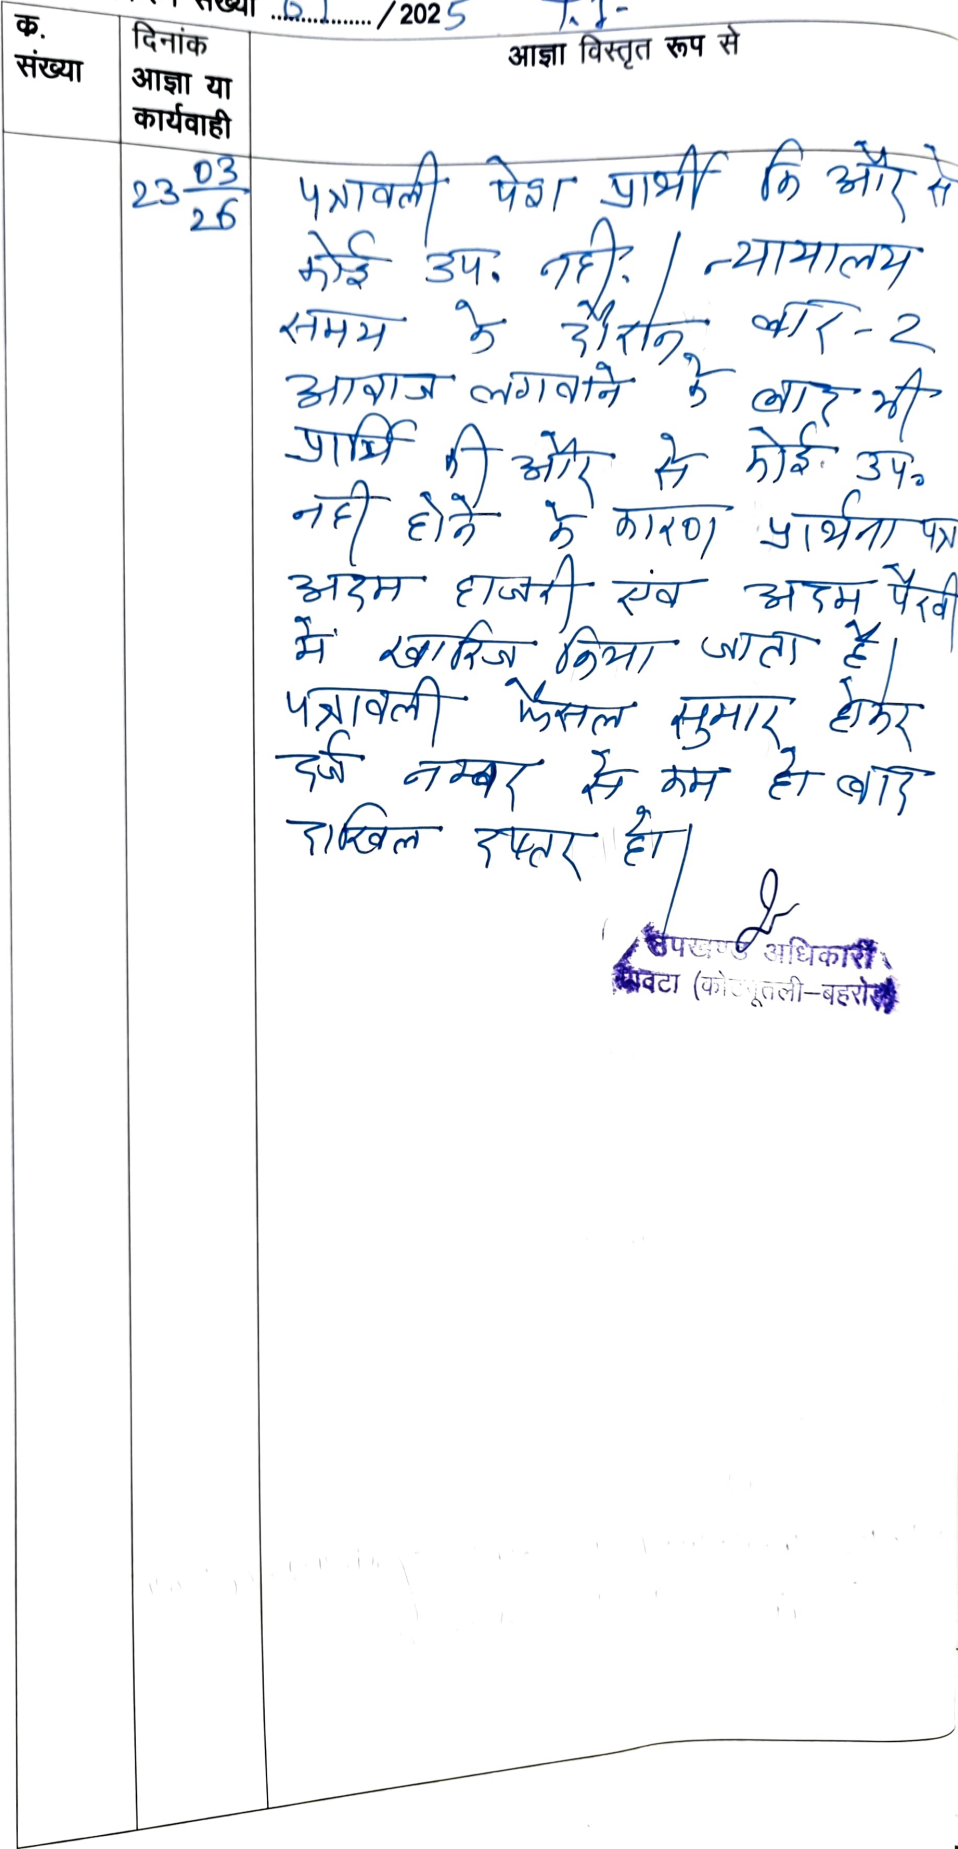 संख्या ............... / 2025 T.I-
क्र.
संख्या
दिनांक
आज्ञा या
कार्यवाही
आज्ञा विस्तृत रूप से
23 03/26
पत्रावली पेश प्रार्थी कि और से
कोई उप. नही. | न्यायालय
समय के दौरान बार-2
आवाज लगवाने के बाद भी
प्रार्थि की और से कोई उप.
नही होने के कारण प्रार्थना पत्र
अदम हाजरी एंव अदम पैरवी
में खारिज किया जाता है|
पत्रावली फैसल सुमार होकर
दर्ज नम्बर से कम हो बाद
दाखिल दफ्तर हो|
उपखण्ड अधिकारी
पावटा (कोटपूतली-बहरोड़)